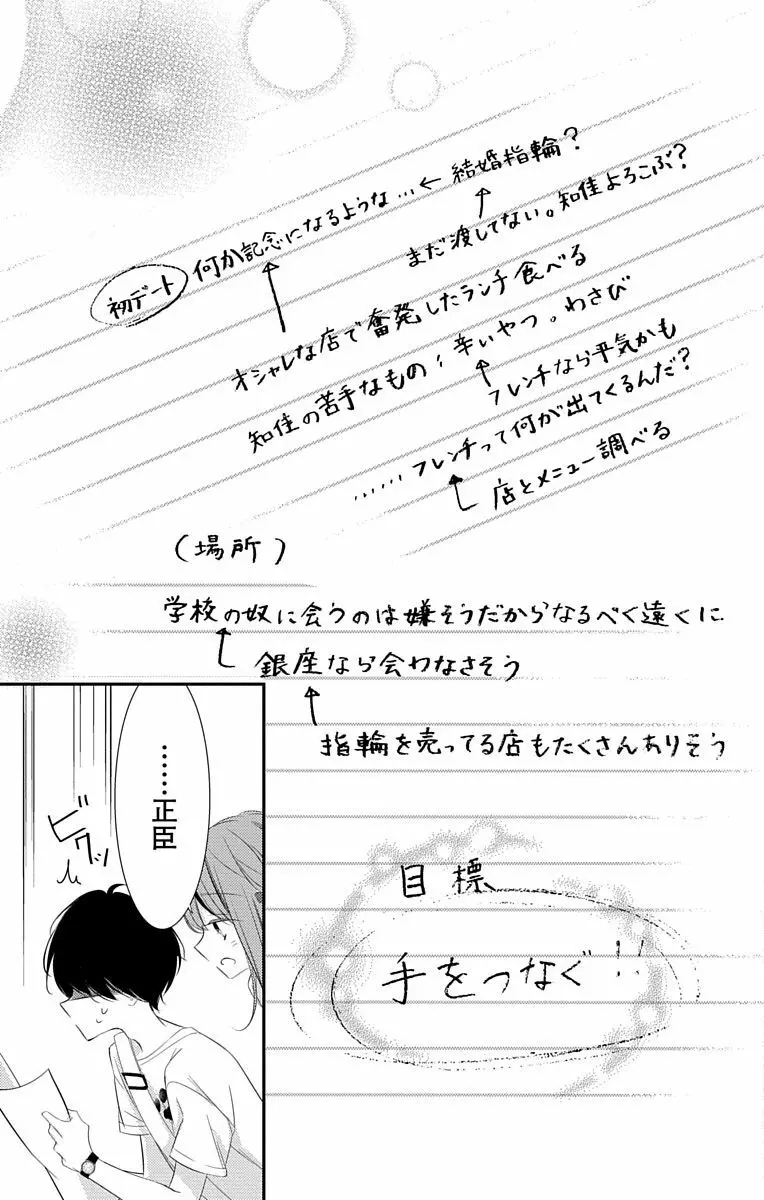 初デート 何か記念になるような…←結婚指輪？
まだ渡してない。知佳よろこぶ？
オシャレな店で奮発したランチ食べる
知佳の苦手なもの；辛いやつ。わさび
フレンチなら平気かも
……フレンチって何が出てくるんだ？
店とメニュー調べる
（場所）
学校の奴に会うのは嫌そうだからなるべく遠くに
銀座なら会わなさそう
指輪を売ってる店もたくさんありそう
目標
手をつなぐ!!
……正臣
ビクッ